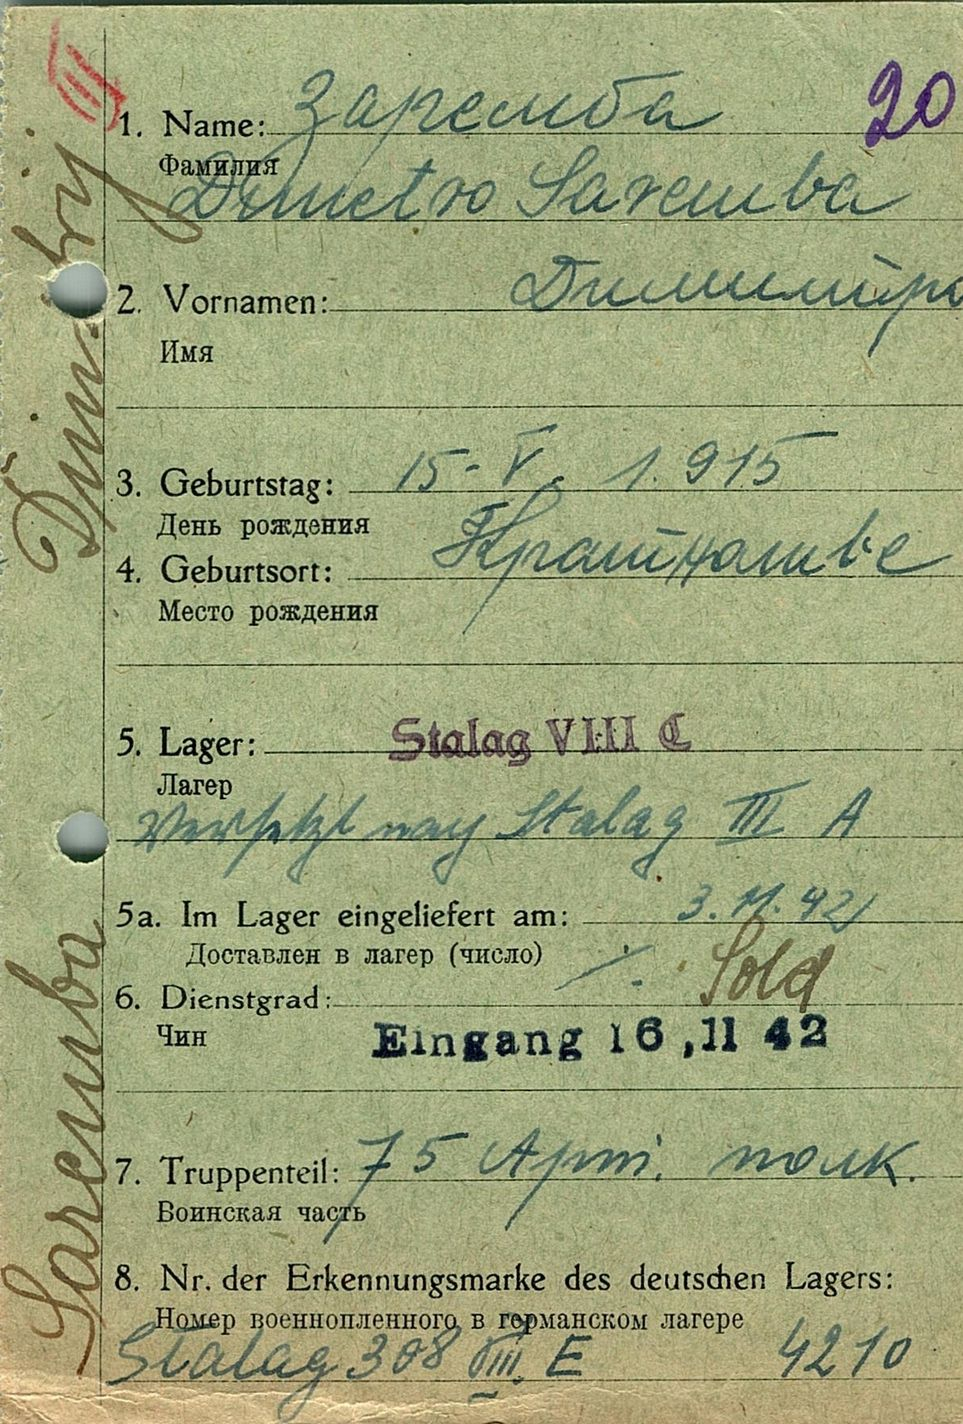 III
20
1. Name: Заремба
Фамилия
Dmetro Saremba
2. Vornamen: Димитро
Имя
3. Geburtstag: 15-V. 1.915
День рождения
4. Geburtsort:
Место рождения
5. Lager: Stalag VIII C
Лагер
Versetzt nach Stalag III A
5a. Im Lager eingeliefert am: 3.11.42
Доставлен в лагер (число)
6. Dienstgrad: Sold
Чин
Eingang 16,11 42
7. Truppenteil: 75 Арт. полк.
Воинская часть
8. Nr. der Erkennungsmarke des deutschen Lagers:
Номер военнопленного в германском лагере
Stalag 308 VIII. E 4210
Saremba